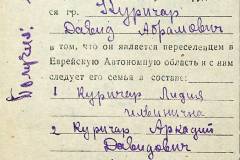 ся гр. Куричар
Давид Абрамович
в том, что он является переселенцем в
Еврейскую Автономную область и с ним
следует его семья в составе:
1 Куричар Лидия
2 Куричар Аркадий
Давидович